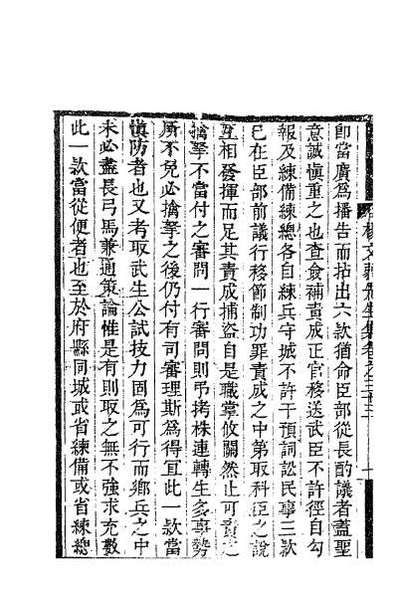 楊文弱先生集卷之三十三 一
卽當廣爲播告而拈出六款猶命臣部從長酌議者蓋聖
意誠愼重之也查僉補責成正官移送武臣不許徑自勾
報及練備練總各自練兵守城不許干預詞訟民事三款
已在臣部前議行移節制功罪責成之中第取科臣之說
互相發揮而足其責成捕盜自是職掌攸關然止可責之
擒拏不當付之審問一行審問則弔拷株連轉生多事勢
所不免必擒拏之後仍付有司審理斯爲得宜此一款當
愼防者也又考取武生公試技力固爲可行而鄉兵之中
未必盡長弓馬兼通策論惟是有則取之無不強求充數
此一款當從便者也至於府縣同城或省練備或省練總